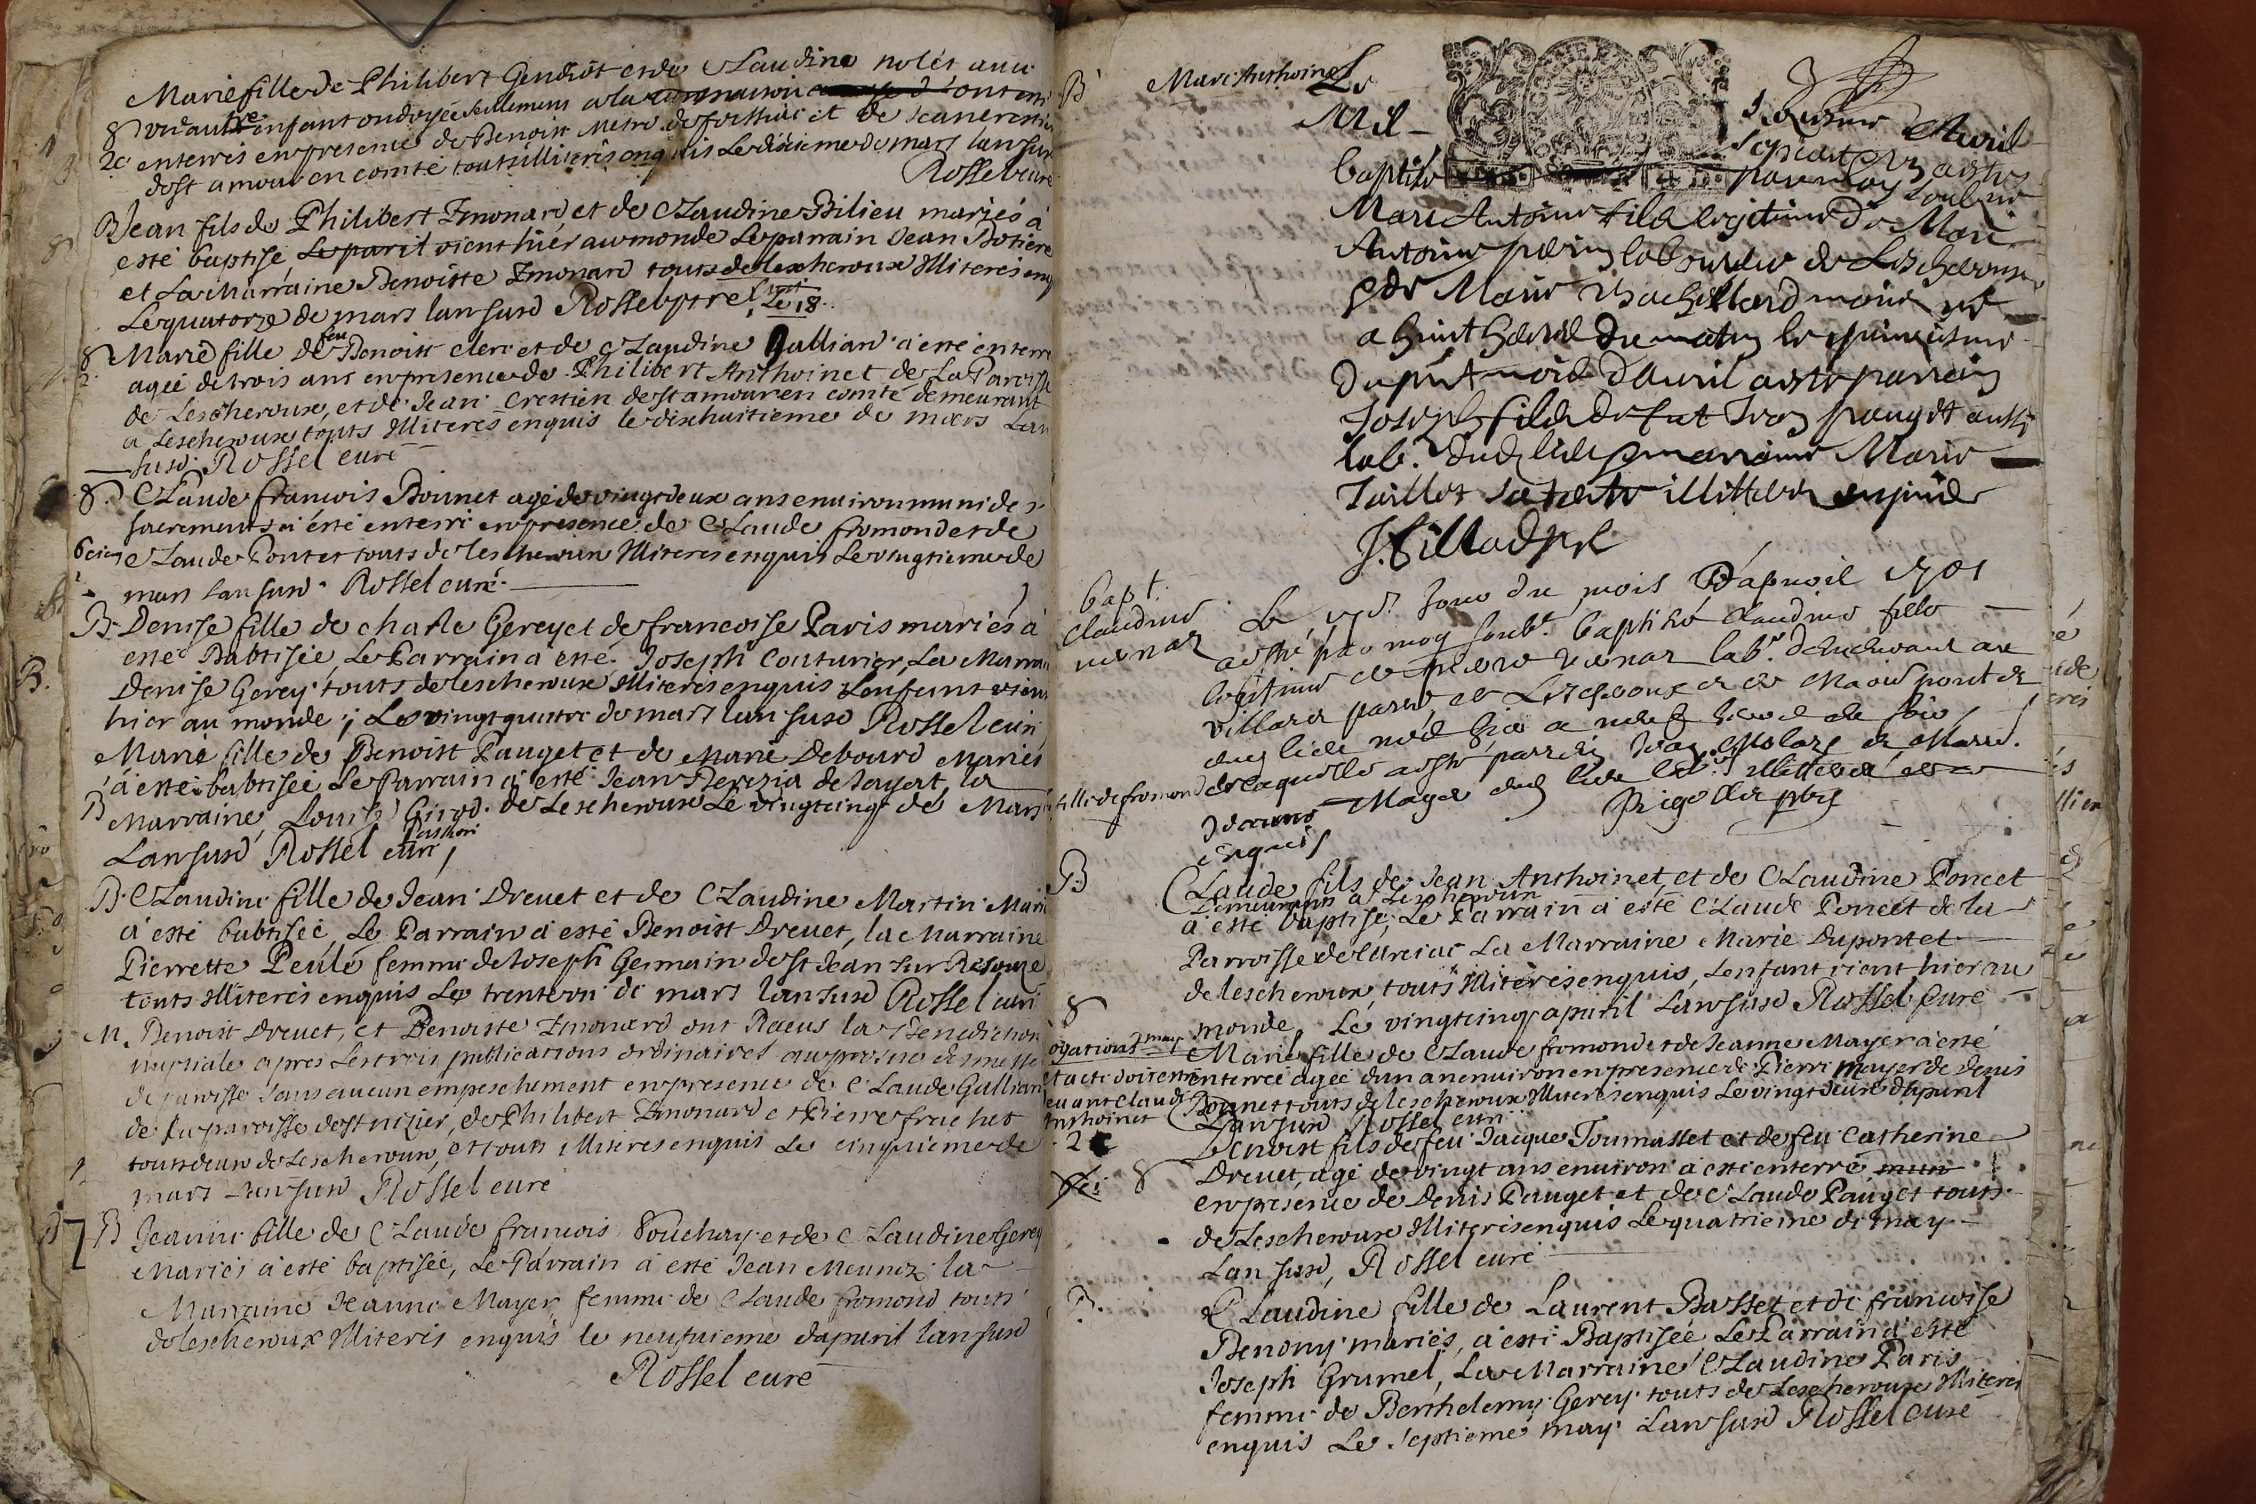 Marie fille de Philibert Gendrot et de Claudine nolét avec
un autre enfant ondoyée seulement a la
enterrés en presence de Benoist de et de Jean crestien
de st amour en comté touts illiterés enquis Le dixieme de mars lan susd
Rossel curé
B Jean fils de Philibert Emonard et de Claudine Bilieu mariés à
esté baptisé vient hier au monde Le parrain Jean
et La Marraine Benoiste Emonard touts de lescheroux Illiterés enquis
Le quatorze de mars lan susd Rossel Le 18
Marie fille de feu Benoist clerc et de Claudine Gulliard a esté enterré
agée de trois ans en presence de Philibert Anthoinet de La Paroisse
de Lescheroux, et de Jean Crestien de st amour en comté demeurant
a Lescheroux touts Illiterés enquis le dixhuitieme de mars Lan
susd Rossel curé
Claude francois Bonnet agé de vingt deux ans environ muni des
sacrements a esté enterré en presence de Claude fromond et de
Claude Pontet touts de lescheroux Illiterés enquis Le vingtieme de
mars lan susd Rossel curé
B Denise fille de charle Gerey et de francoise Paris mariés à
esté Babtisée, Le Parrain a esté Joseph Couturier, La Marraine
Denise Gerey touts de lescheroux Illiterés enquis Lenfant vient
hier au monde ; Le vingt quatre de mars lan susd Rossel curé
Marie fille de Benoist Pauget et de Marie Debourd Mariés
a esté babtisée Le Parrain a esté Jean Perezia de Jayat, la
B Marraine Louise Girod de Lescheroux Le vingtcinq de Mars
Lan susd Rossel curé
B Claudine fille de Jean Drevet et de Claudine Martin Mariés
a esté babtisée, Le Parrain a esté Benoist Drevet, la Marraine
Pierrette Peulé femme de Joseph Germain de st Jean sur Resouze
touts Illiterés enquis Le trente un de mars lan susd Rossel curé
M Benoist Drevet, et Benoiste Emonard ont Receus la Benediction
nuptiale apres Les trois publications ordinaires au prosne de messe
de paroisse sans aucun empeschement en presence de Claude Gulliard
de La paroisse de st nizier, de Philibert Emonard et Pierre frachet
touts deux de Lescheroux, et touts illiterés enquis Le cinquieme de
mars Lan susd Rossel curé
B Jeanne fille de Claude francois Bouchay et de Claudine Gerey
Mariés a esté baptisée, Le Parrain a esté Jean Meunez la
Marraine Jeanne Mayer femme de Claude fromond touts
de lescheroux Illiterés enquis le neufvieme dapuril lan susd
Rossel curé
B Marc Anthoine
Le Avril
Mil
baptisé par moy
Marc Antoine fils legitime de Marc
Antoine laboureur de Lescheroux
& de Marie mariés né
a huict heures du matin le quinzieme
du pnt mois d'avril a esté parrain
Joseph fils de fut Jean pauget aussi
lab. dud lieu & marraine Marie
Taillet illitterés enquis
bapt.
Claudine
Le jour du mois D'apuril 1701
a esté par moy soub.é baptisé Claudine fille
legitime de pierre lab.r demeurant au
villard parr.e de Lescheroux et de Marie pontet
dud lieu née hier a neuf heures du soir,
de laquelle a esté parrain Jean Molard et Marr.
Mayer dud lieu illitterés
enquis
B
Claude fils de Jean Anthoinet et de Claudine Poncet
demeurants a Lescheroux
a esté baptisé, Le Parrain a esté Claude Poncet de la
Parroisse de La Marraine Marie Dupontet
de lescheroux, touts Illiterés enquis, Lenfant vient hier au
monde, Le vingtcinq apuril Lan susd Rossel Curé
Marie fille de Claude fromond et de Jeanne Mayer a esté
enterrée agée dun an environ en presence de Pierre Mayer de Denis
Bonnet touts de lescheroux Illiterés enquis Le vingt deux dapuril
Lan susd Rossel curé
Anthoinet
Benoist fils de feu Jacque Toumasset et de feu Catherine
Drevet, agé de vingt ans environ a esté enterré
en presence de Denis Pauget et de Claude Pauget touts
de Lescheroux Illiterés enquis Le quatrieme de may
Lan susd, Rossel curé
B.
Claudine fille de Laurent Basset et de francoise
Benony mariés, a esté Baptisée Le Parrain a esté
Joseph Grumel, La Marraine Claudine Paris
femme de Berthelemy Gerey touts de Lescheroux Illiterés
enquis Le septieme may Lan susd Rossel curé